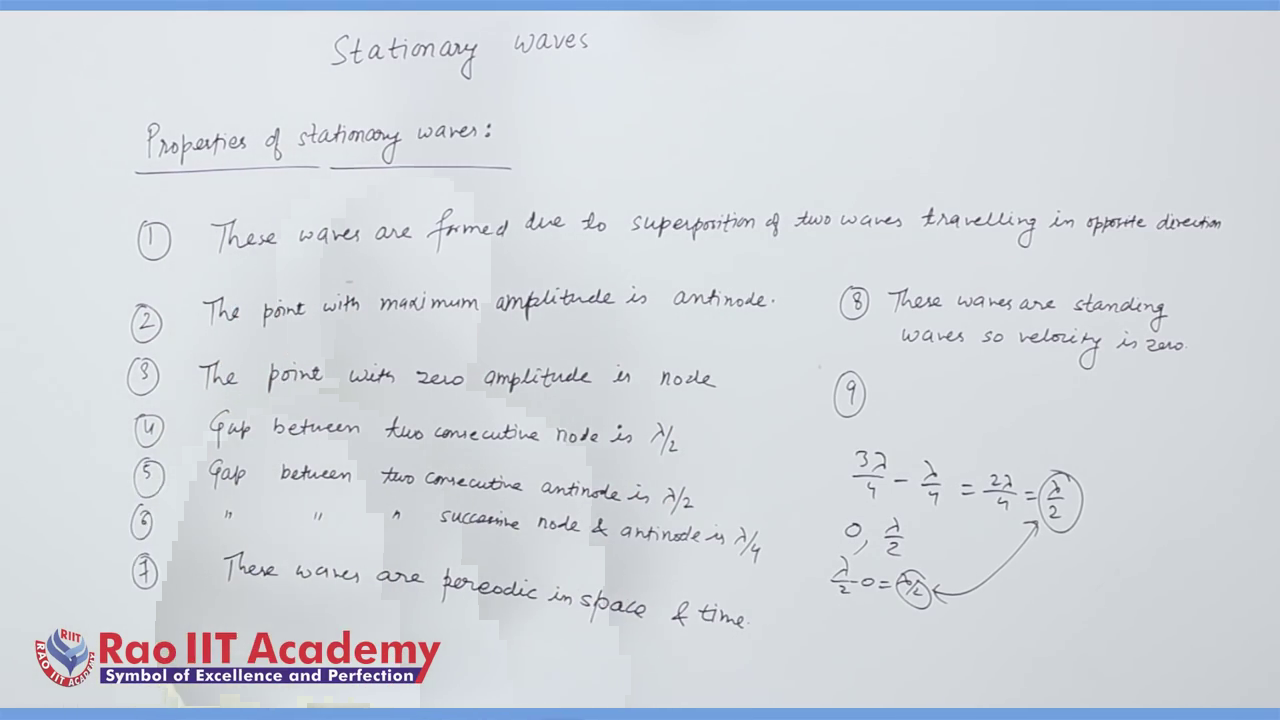 Stationary waves
Properties of stationary waves:
1 These waves are formed due to superposition of two waves travelling in opposite direction
2 The point with maximum amplitude is antinode.
3 The point with zero amplitude is node
4 Gap between two consecutive node is λ/2
5 Gap between two consecutive antinode is λ/2
6 " " " successive node & antinode is λ/4
7 These waves are pereodic in space & time.
8 These waves are standing
waves so velocity is zero.
9
3λ/4 - λ/4 = 2λ/4 = λ/2
0, λ/2
λ/2 - 0 = λ/2
RIIT
RAO IIT ACADEMY
Rao IIT Academy
Symbol of Excellence and Perfection